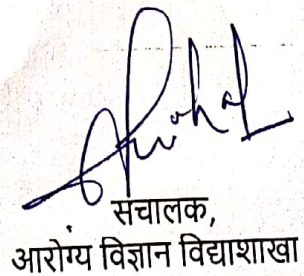 संचालक,
आरोग्य विज्ञान विद्याशाखा